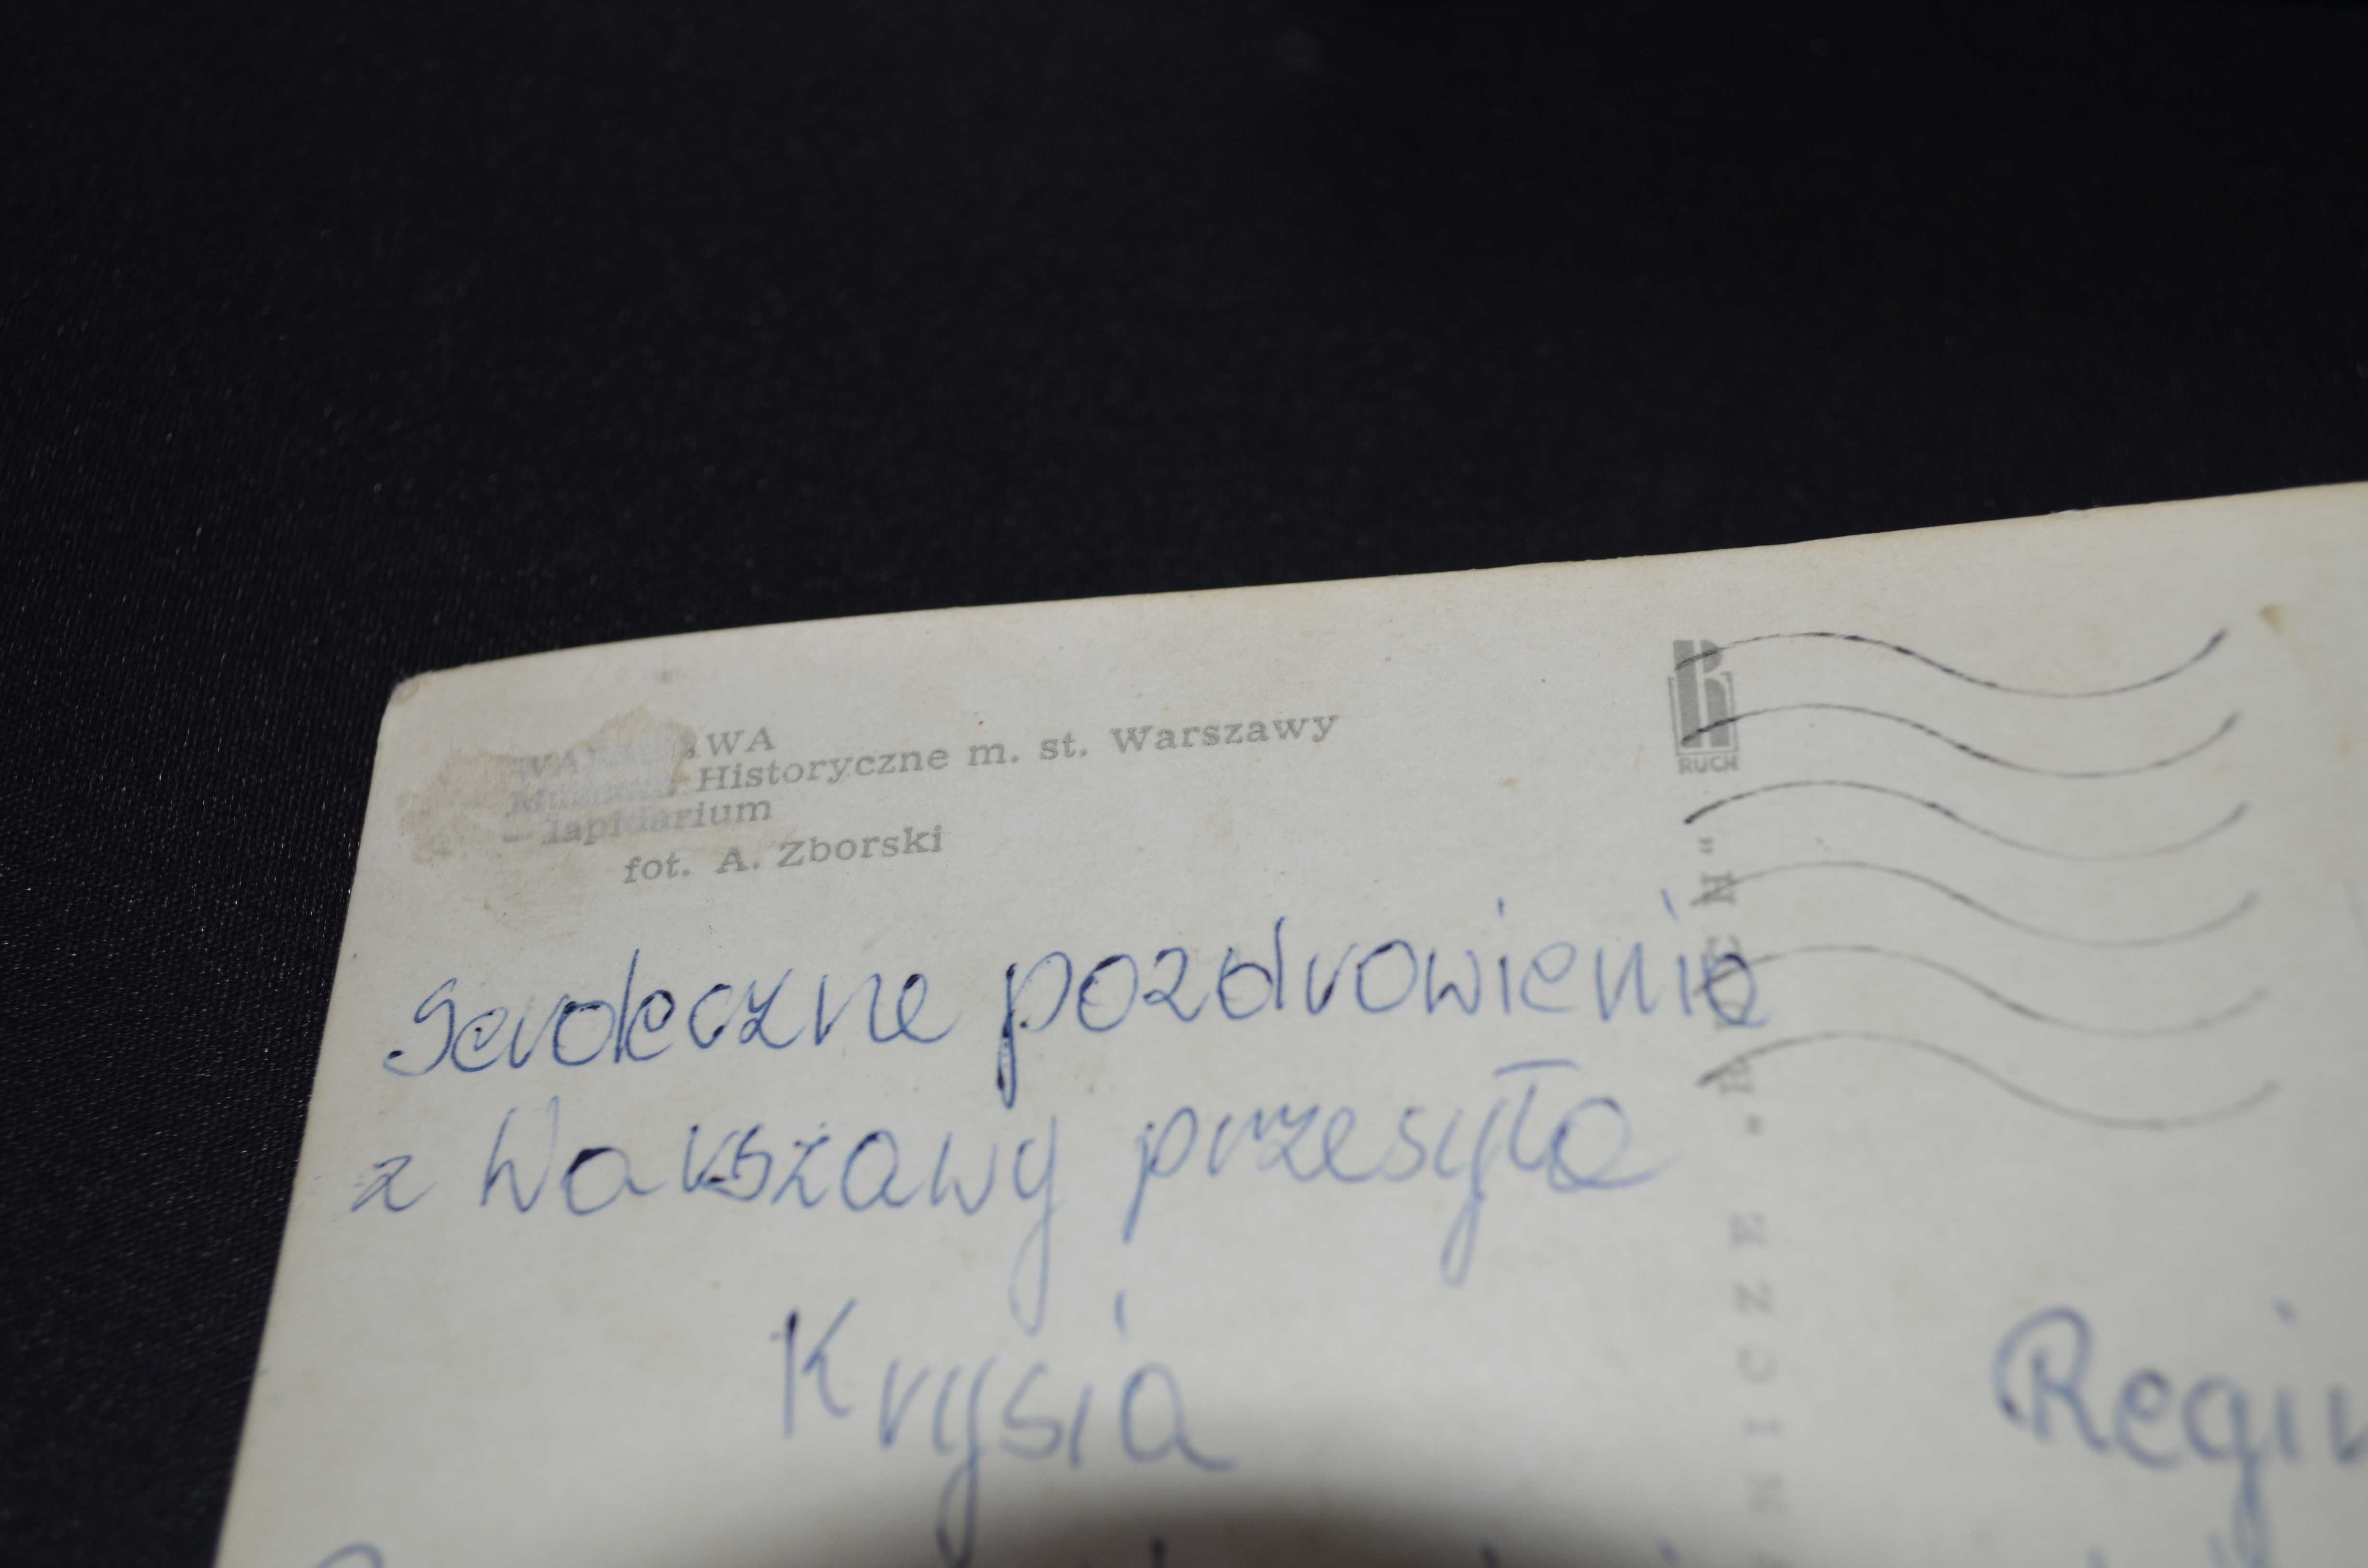 WARSZAWA
Muzeum Historyczne m. st. Warszawy
— lapidarium
fot. A. Zborski
Serdeczne pozdrowienia
z Warszawy przesyła
Krysia
RUCH